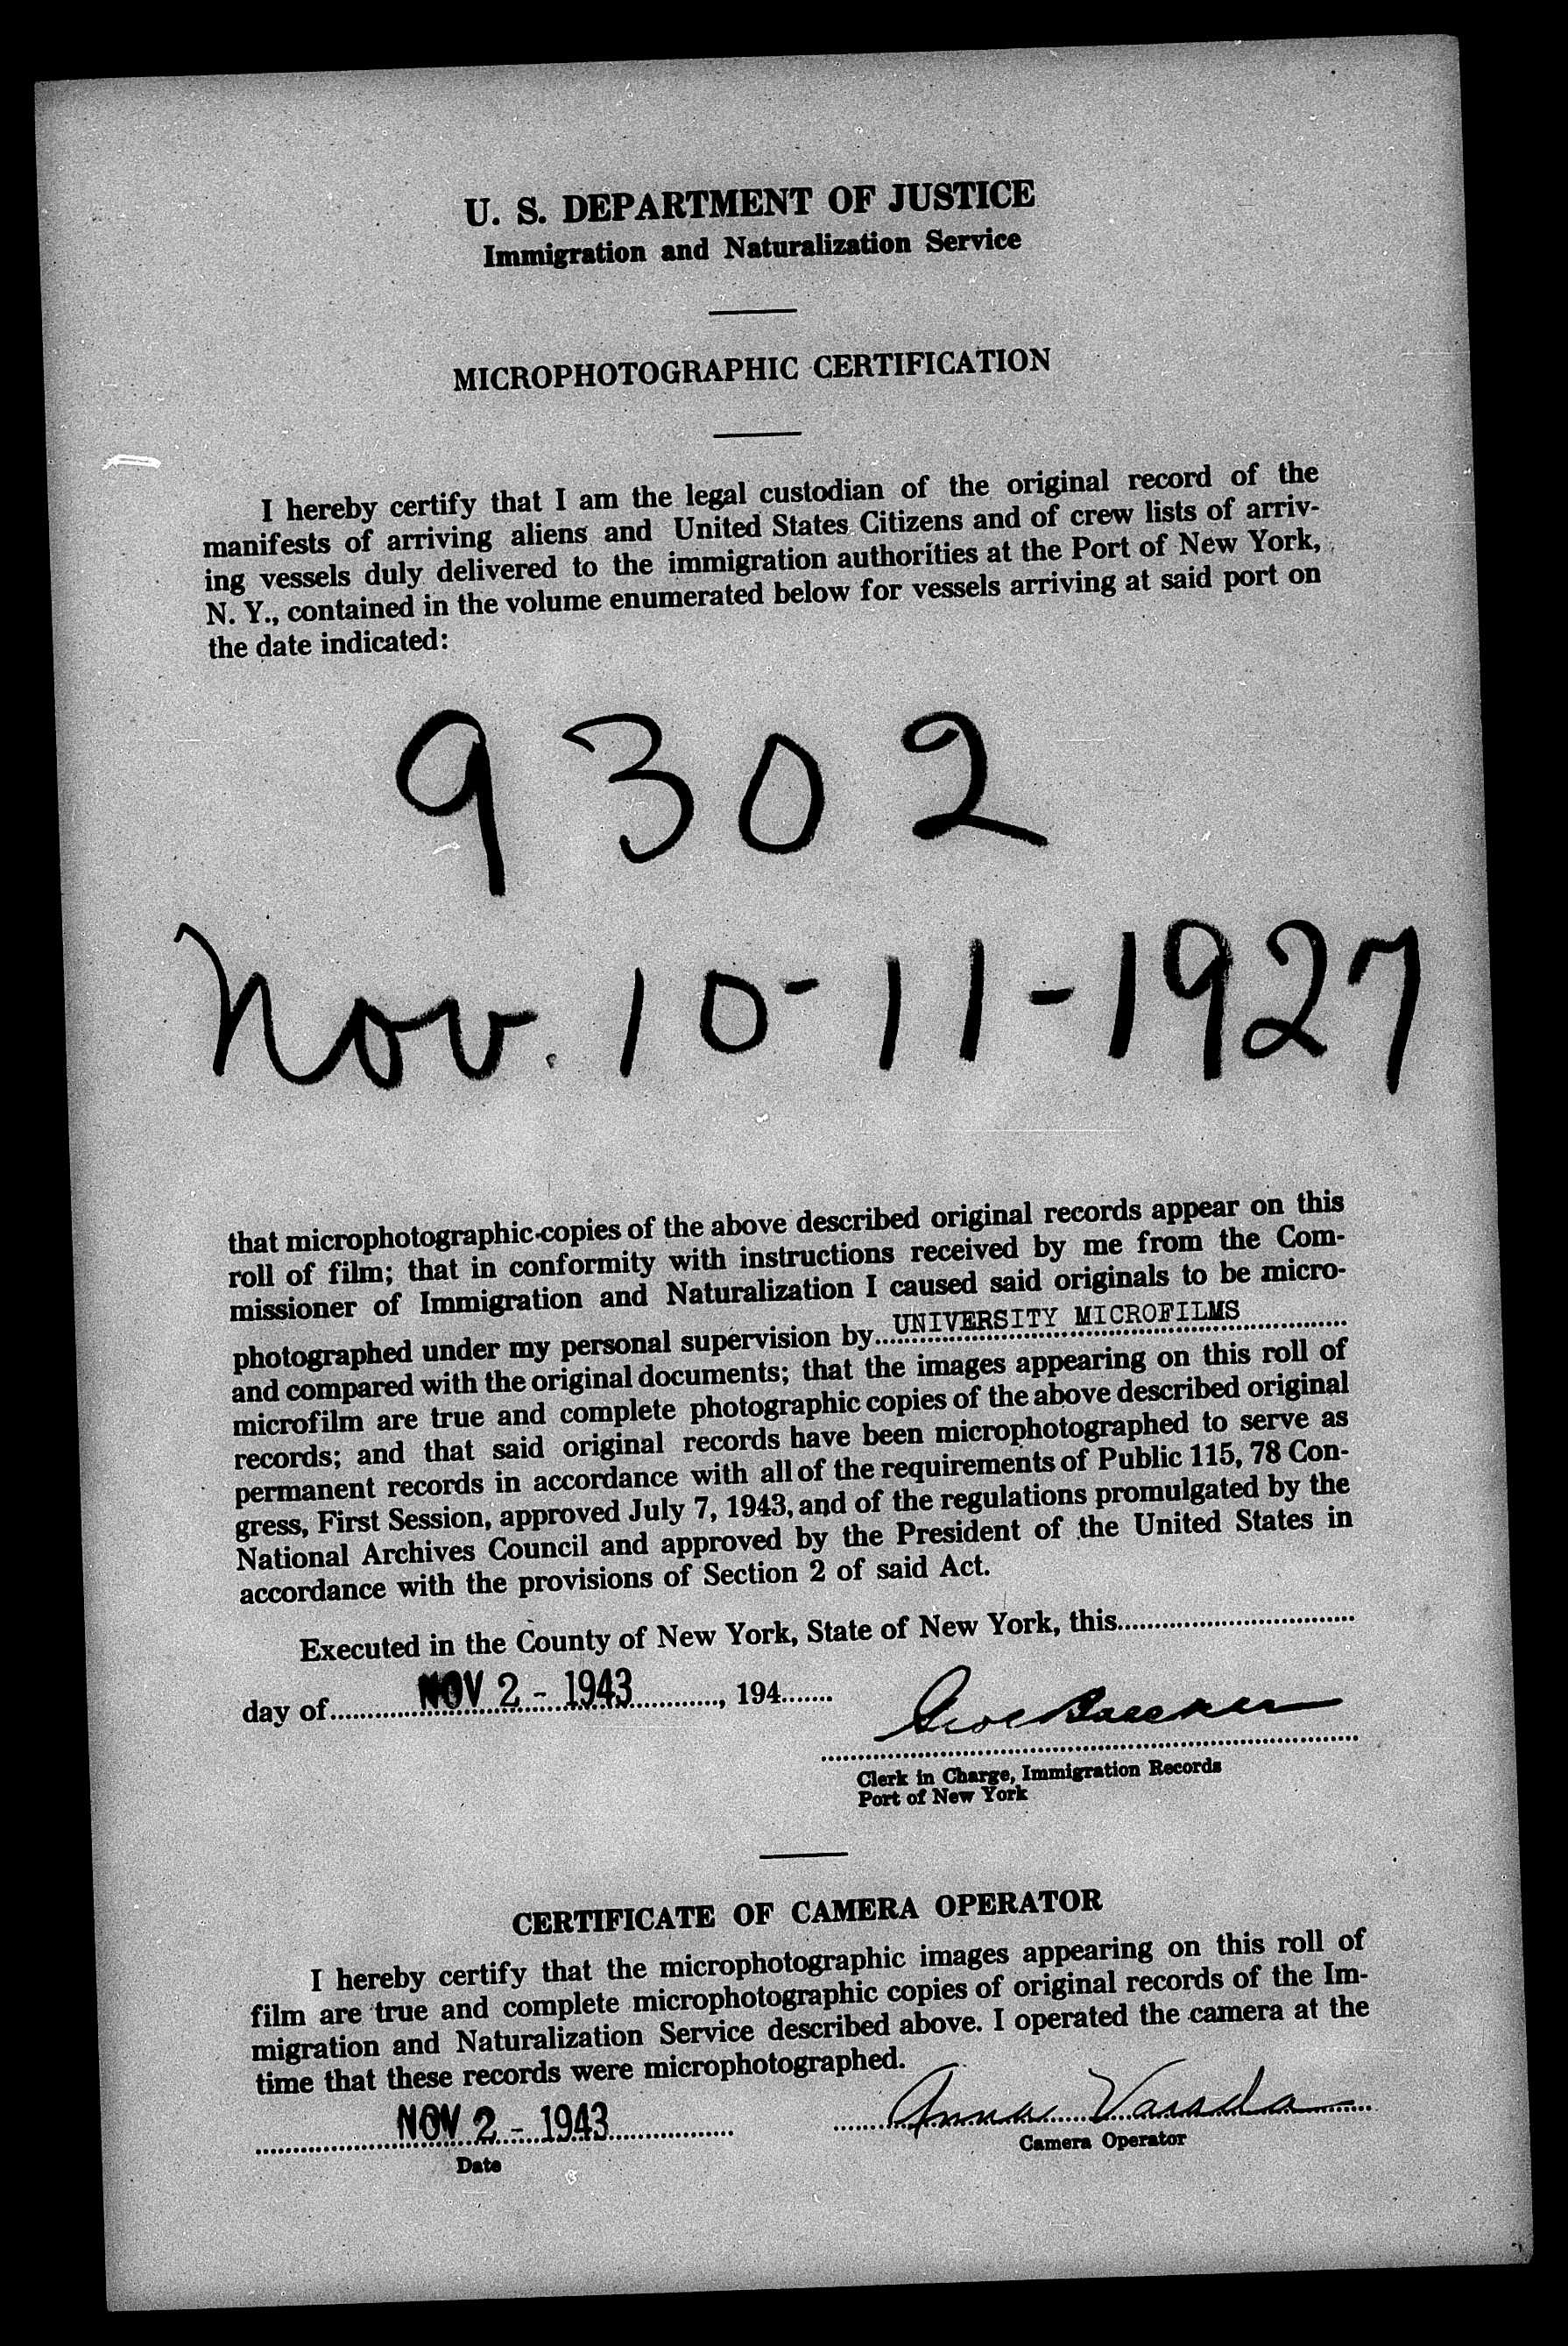 U. S. DEPARTMENT OF JUSTICE
Immigration and Naturalization Service
MICROPHOTOGRAPHIC CERTIFICATION
I hereby certify that I am the legal custodian of the original record of the
manifests of arriving aliens and United States Citizens and of crew lists of arriv-
ing vessels duly delivered to the immigration authorities at the Port of New York,
N. Y., contained in the volume enumerated below for vessels arriving at said port on
the date indicated:
9302
Nov. 10-11-1927
that microphotographic copies of the above described original records appear on this
roll of film; that in conformity with instructions received by me from the Com-
missioner of Immigration and Naturalization I caused said originals to be micro-
photographed under my personal supervision by UNIVERSITY MICROFILMS
and compared with the original documents; that the images appearing on this roll of
microfilm are true and complete photographic copies of the above described original
records; and that said original records have been microphotographed to serve as
permanent records in accordance with all of the requirements of Public 115, 78 Con-
gress, First Session, approved July 7, 1943, and of the regulations promulgated by the
National Archives Council and approved by the President of the United States in
accordance with the provisions of Section 2 of said Act.
Executed in the County of New York, State of New York, this
day of NOV 2 - 1943, 194
Clerk in Charge, Immigration Records
Port of New York
CERTIFICATE OF CAMERA OPERATOR
I hereby certify that the microphotographic images appearing on this roll of
film are true and complete microphotographic copies of original records of the Im-
migration and Naturalization Service described above. I operated the camera at the
time that these records were microphotographed.
NOV 2 - 1943 Anna
Date
Camera Operator